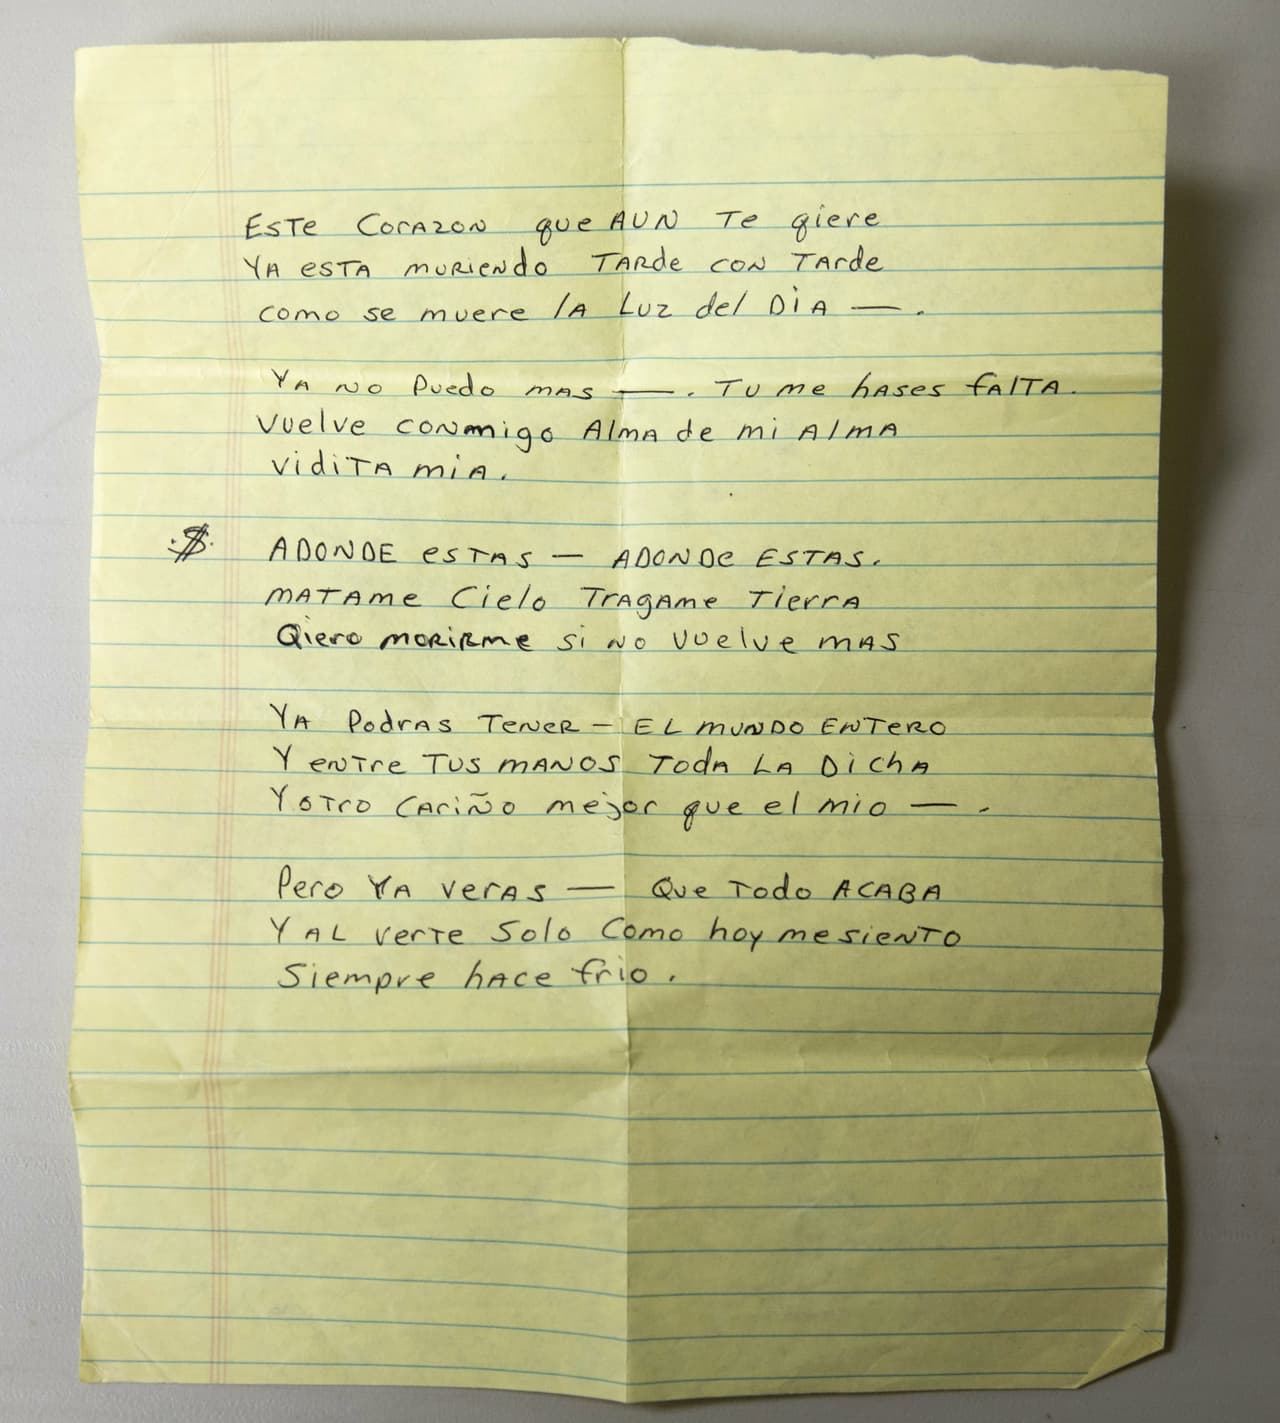 ESTE CORAZON que AUN Te qiere
YA esTA muriendo TARde CON TArde
como se muere lA Luz del DiA — .
YA NO Puedo mAs — . TU me hAses fAlTA.
Vuelve conmigo AlmA de mi AlmA
vidiTA miA.
ADONDE esTAS — ADONDe ESTAS.
mATAme Cielo TrAgAme TierrA
Qiero morirme si no vuelve mAS
YA PodrAS TeNer – EL muNDO ENTerO
Y eNTre TUS mANOS TodA LA DichA
Y OTrO CAriño mejor que el mio — .
Pero YA verAS — Que Todo ACABA
Y AL verTe Solo Como hoy me sieNTO
Siempre hAce frio .